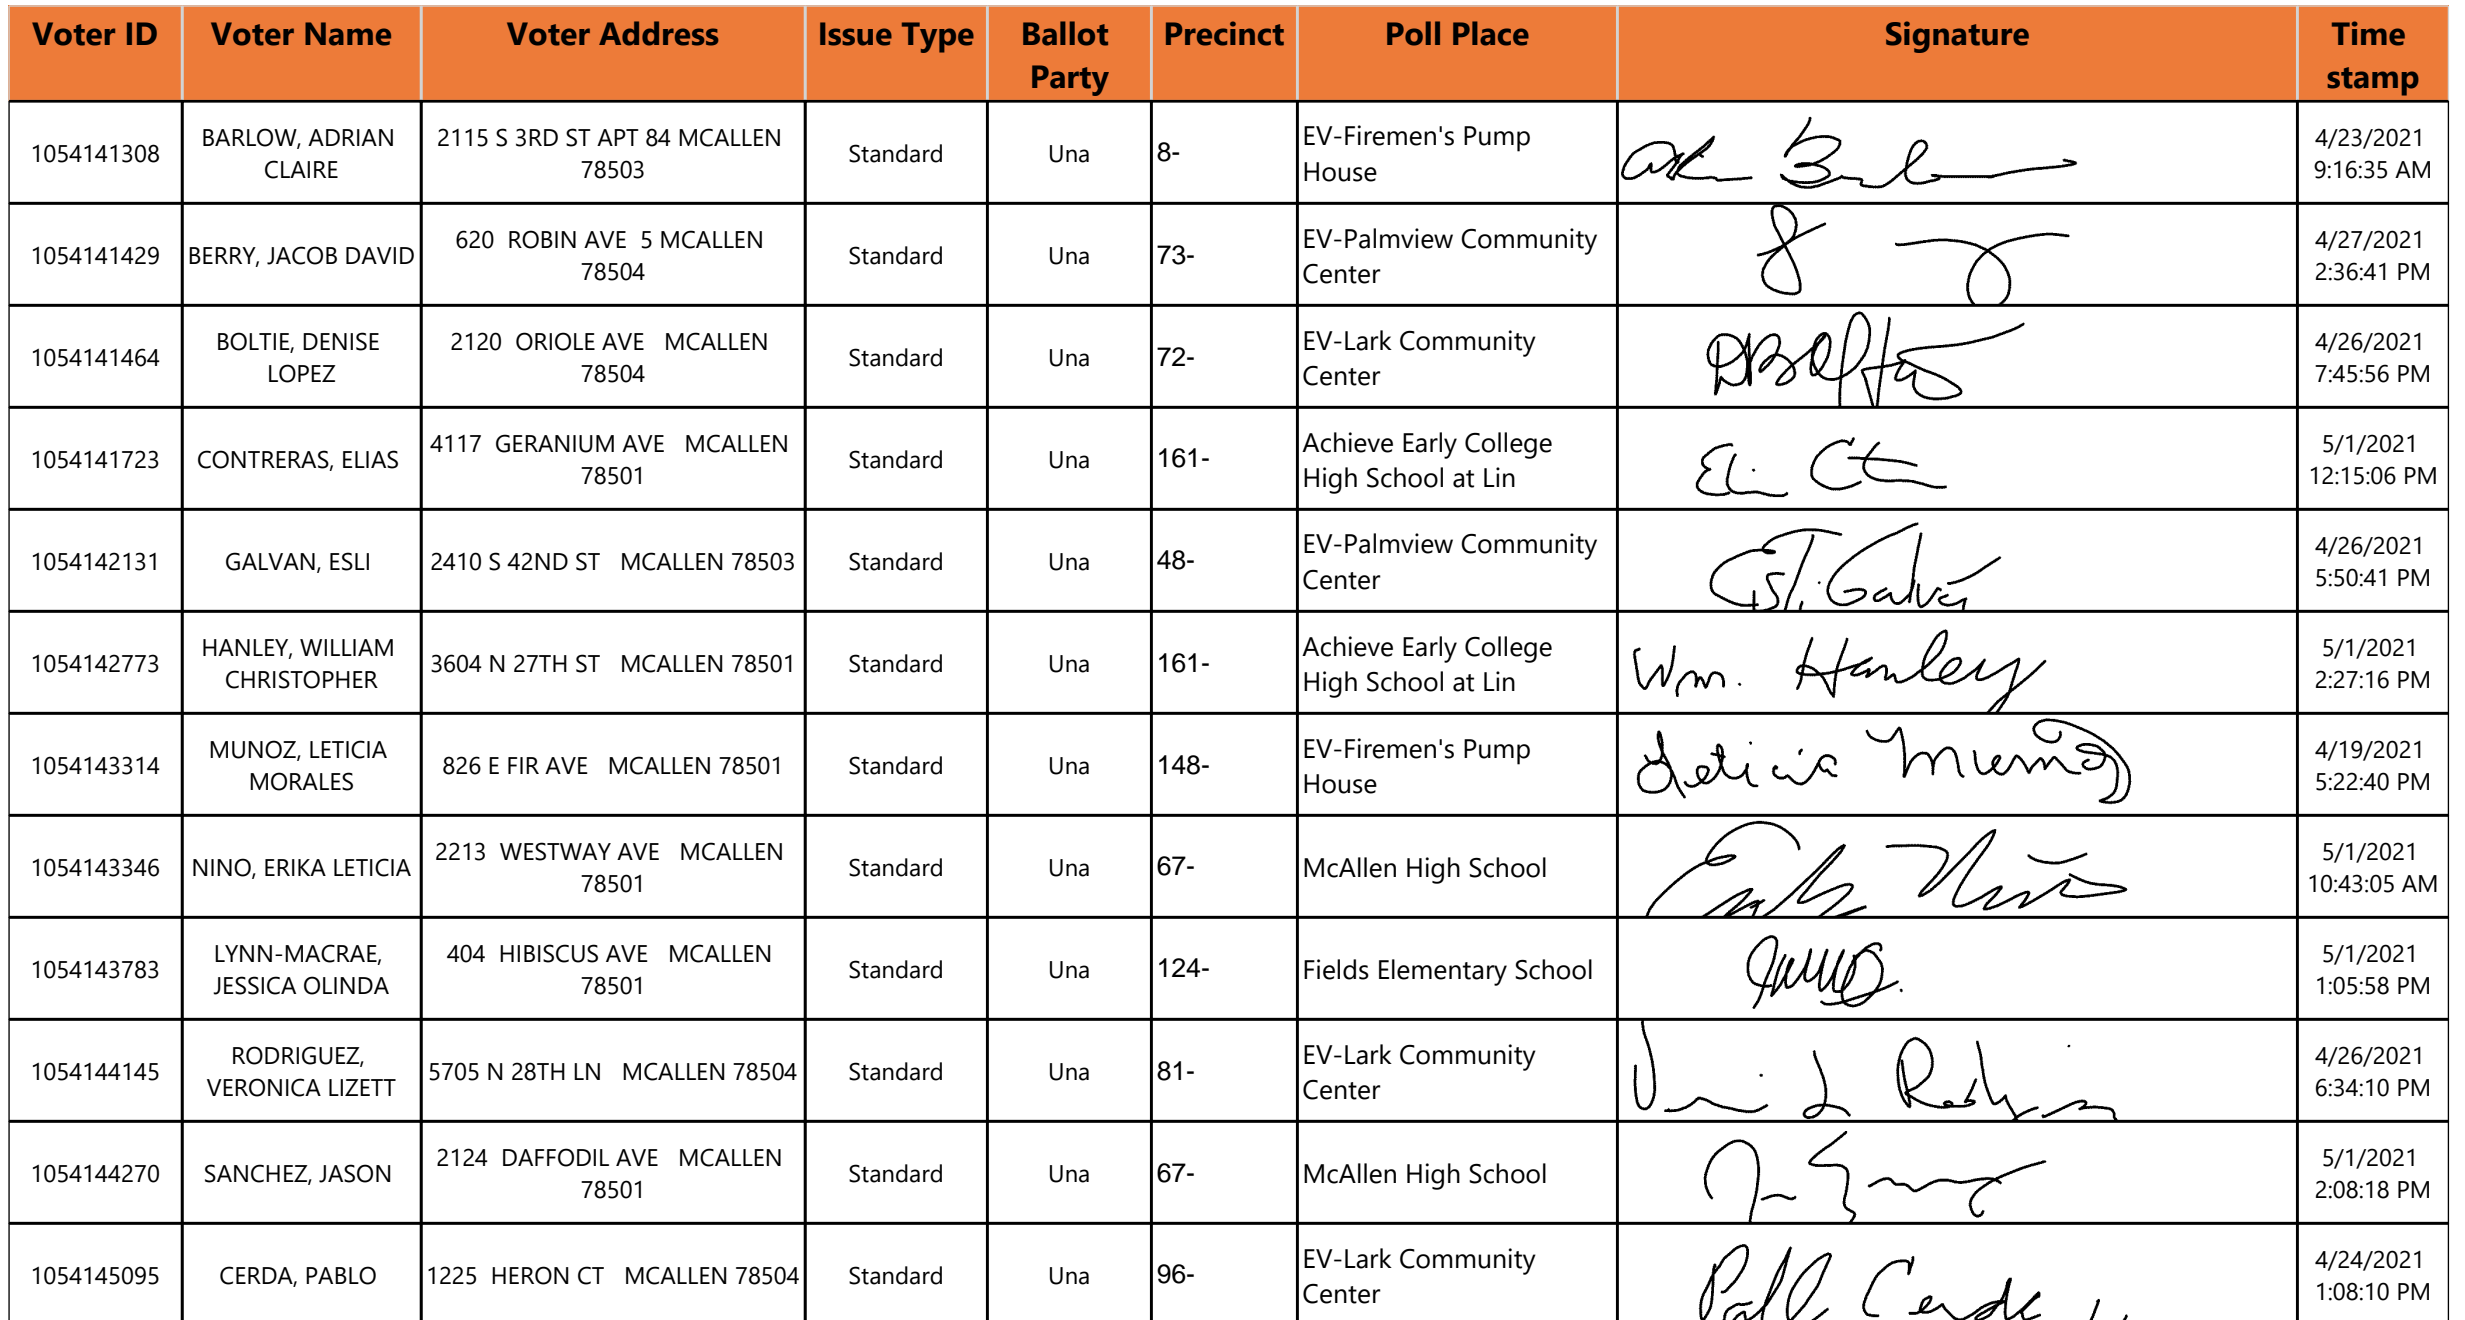 Voter ID Voter Name Voter Address Issue Type Ballot Party Precinct Poll Place Signature Time stamp
1054141308 BARLOW, ADRIAN CLAIRE 2115 S 3RD ST APT 84 MCALLEN 78503 Standard Una 8- EV-Firemen's Pump House 4/23/2021 9:16:35 AM
1054141429 BERRY, JACOB DAVID 620 ROBIN AVE 5 MCALLEN 78504 Standard Una 73- EV-Palmview Community Center 4/27/2021 2:36:41 PM
1054141464 BOLTIE, DENISE LOPEZ 2120 ORIOLE AVE MCALLEN 78504 Standard Una 72- EV-Lark Community Center 4/26/2021 7:45:56 PM
1054141723 CONTRERAS, ELIAS 4117 GERANIUM AVE MCALLEN 78501 Standard Una 161- Achieve Early College High School at Lin 5/1/2021 12:15:06 PM
1054142131 GALVAN, ESLI 2410 S 42ND ST MCALLEN 78503 Standard Una 48- EV-Palmview Community Center Galván 4/26/2021 5:50:41 PM
1054142773 HANLEY, WILLIAM CHRISTOPHER 3604 N 27TH ST MCALLEN 78501 Standard Una 161- Achieve Early College High School at Lin Wm. Hanley 5/1/2021 2:27:16 PM
1054143314 MUNOZ, LETICIA MORALES 826 E FIR AVE MCALLEN 78501 Standard Una 148- EV-Firemen's Pump House Leticia Munoz 4/19/2021 5:22:40 PM
1054143346 NINO, ERIKA LETICIA 2213 WESTWAY AVE MCALLEN 78501 Standard Una 67- McAllen High School 5/1/2021 10:43:05 AM
1054143783 LYNN-MACRAE, JESSICA OLINDA 404 HIBISCUS AVE MCALLEN 78501 Standard Una 124- Fields Elementary School 5/1/2021 1:05:58 PM
1054144145 RODRIGUEZ, VERONICA LIZETT 5705 N 28TH LN MCALLEN 78504 Standard Una 81- EV-Lark Community Center 4/26/2021 6:34:10 PM
1054144270 SANCHEZ, JASON 2124 DAFFODIL AVE MCALLEN 78501 Standard Una 67- McAllen High School 5/1/2021 2:08:18 PM
1054145095 CERDA, PABLO 1225 HERON CT MCALLEN 78504 Standard Una 96- EV-Lark Community Center 4/24/2021 1:08:10 PM